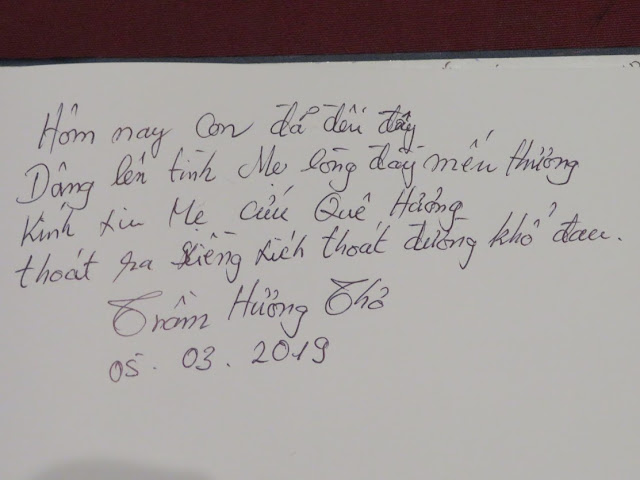 Hôm nay con đã đến đây
Dâng lên tình Mẹ lòng đầy mến thương
Kính xin Mẹ cứu Quê Hương
thoát ra xiềng xích thoát đường khổ đau.
Trầm Hương Thơ
05. 03. 2019